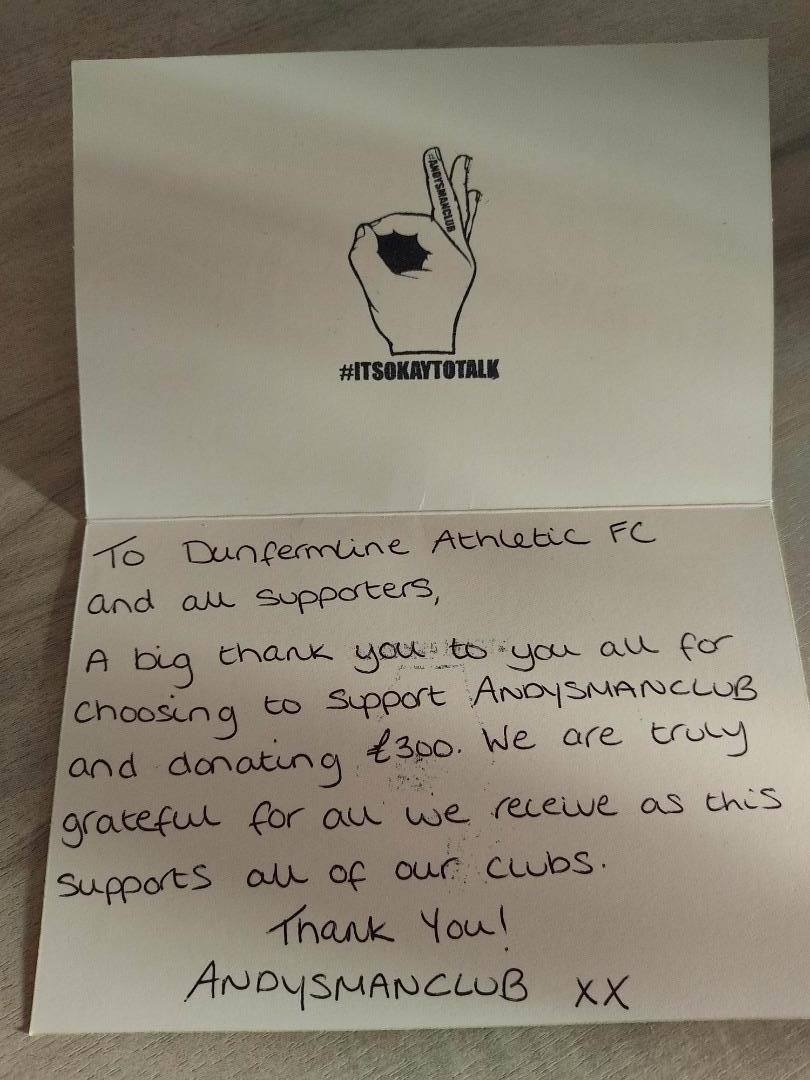 #ANDYSMANCLUB
#ITSOKAYTOTALK
To Dunfermline Athletic FC
and all supporters,
A big thank you to you all for
choosing to support ANDYSMANCLUB
and donating £300. We are truly
grateful for all we receive as this
supports all of our clubs.
Thank You!
ANDYSMANCLUB xx